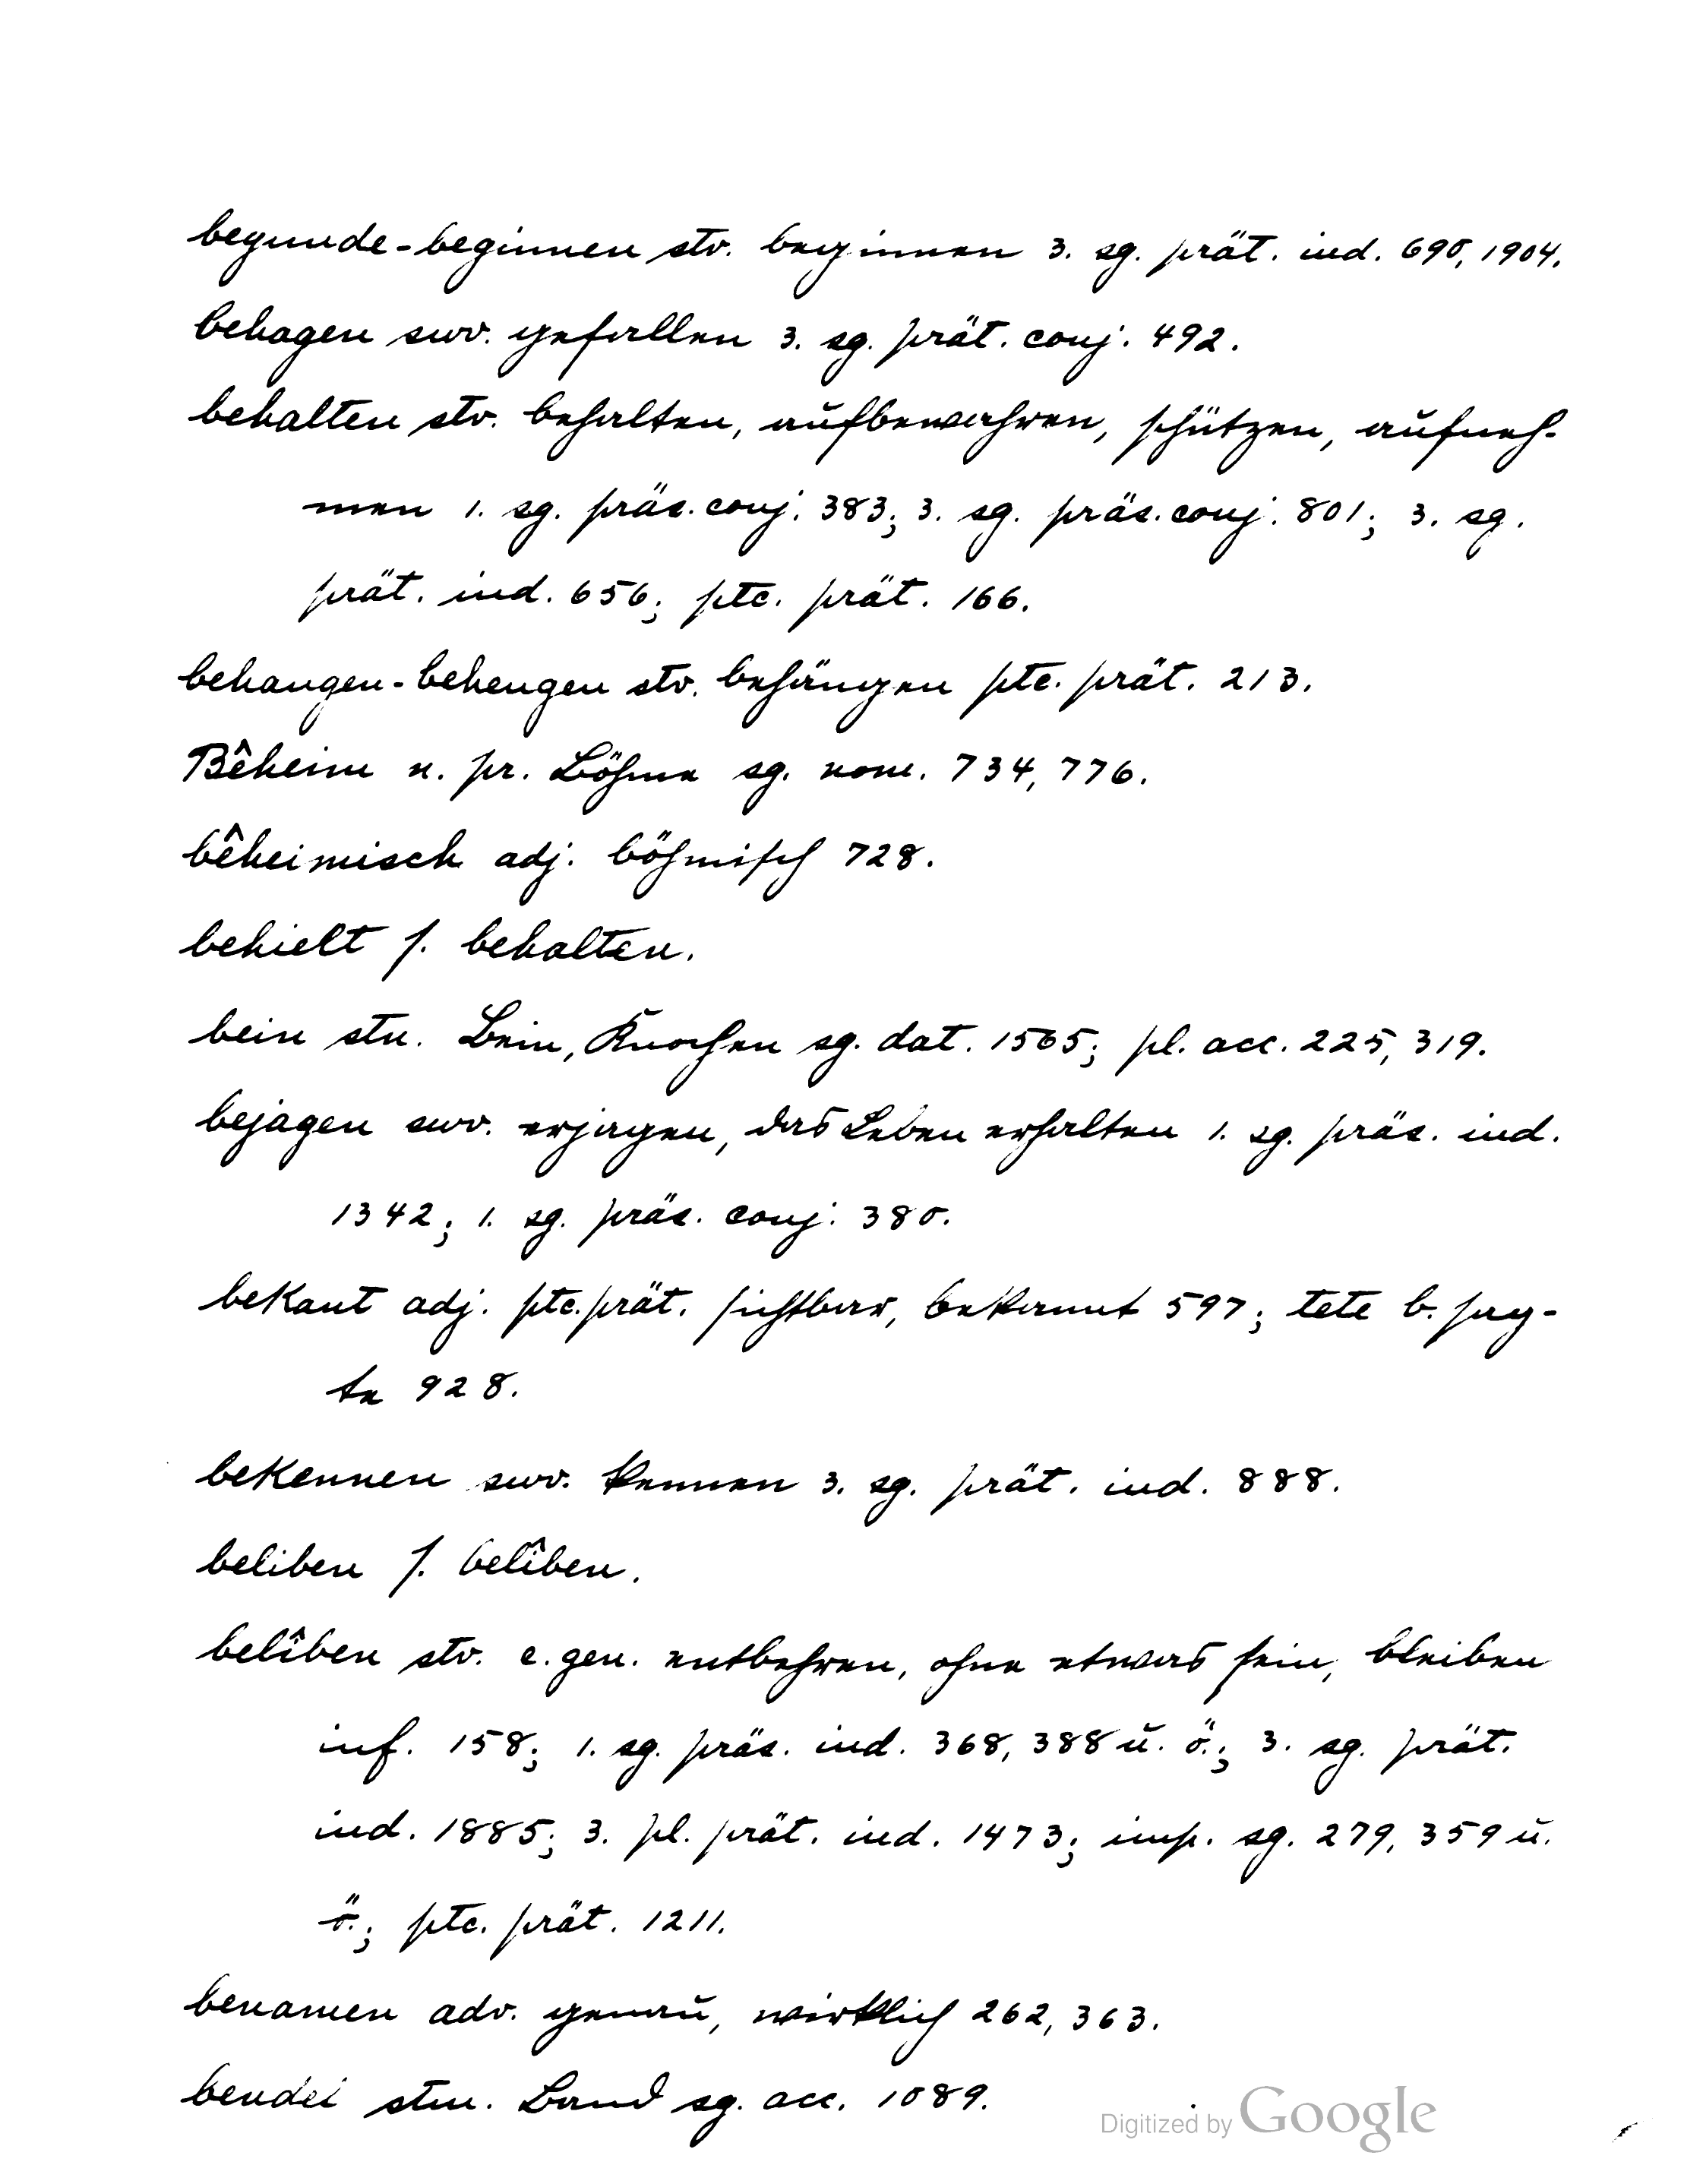 begunde-beginnen stv. beginnen 3. sg. prät. ind. 690, 1904.
behagen swv. gefallen 3. sg. prät. conj. 492.
behalten stv. behalten, aufbewahren, schützen, aufneh-
men 1. sg. präs. conj. 383; 3. sg. präs. conj. 801; 3. sg.
prät. ind. 656; ptc. prät. 166.
behangen-behengen stv. behängen ptc. prät. 213.
Bêheim n. pr. Böhme sg. nom. 734, 776.
bêheimisch adj. böhmisch 728.
behielt s. behalten.
bein stn. Bein, Knochen sg. dat. 1505; pl. acc. 225, 319.
bejagen swv. erjagen, das Leben erhalten 1. sg. präs. ind.
1342; 1. sg. präs. conj. 380.
bekant adj. ptc. prät. sichtbar, bekannt 597; tete b. sag-
te 928.
bekennen swv. kennen 3. sg. prät. ind. 888.
beliben s. belîben.
belîben stv. c. gen. entbehren, ohne etwas sein, bleiben
inf. 158; 1. sg. präs. ind. 368, 388 u. ö.; 3. sg. prät.
ind. 1885; 3. pl. prät. ind. 1473; imp. sg. 279, 359 u.
ö.; ptc. prät. 1211.
benamen adv. genau, wirklich 262, 363.
bendel stm. Band sg. acc. 1089.
Digitized by Google